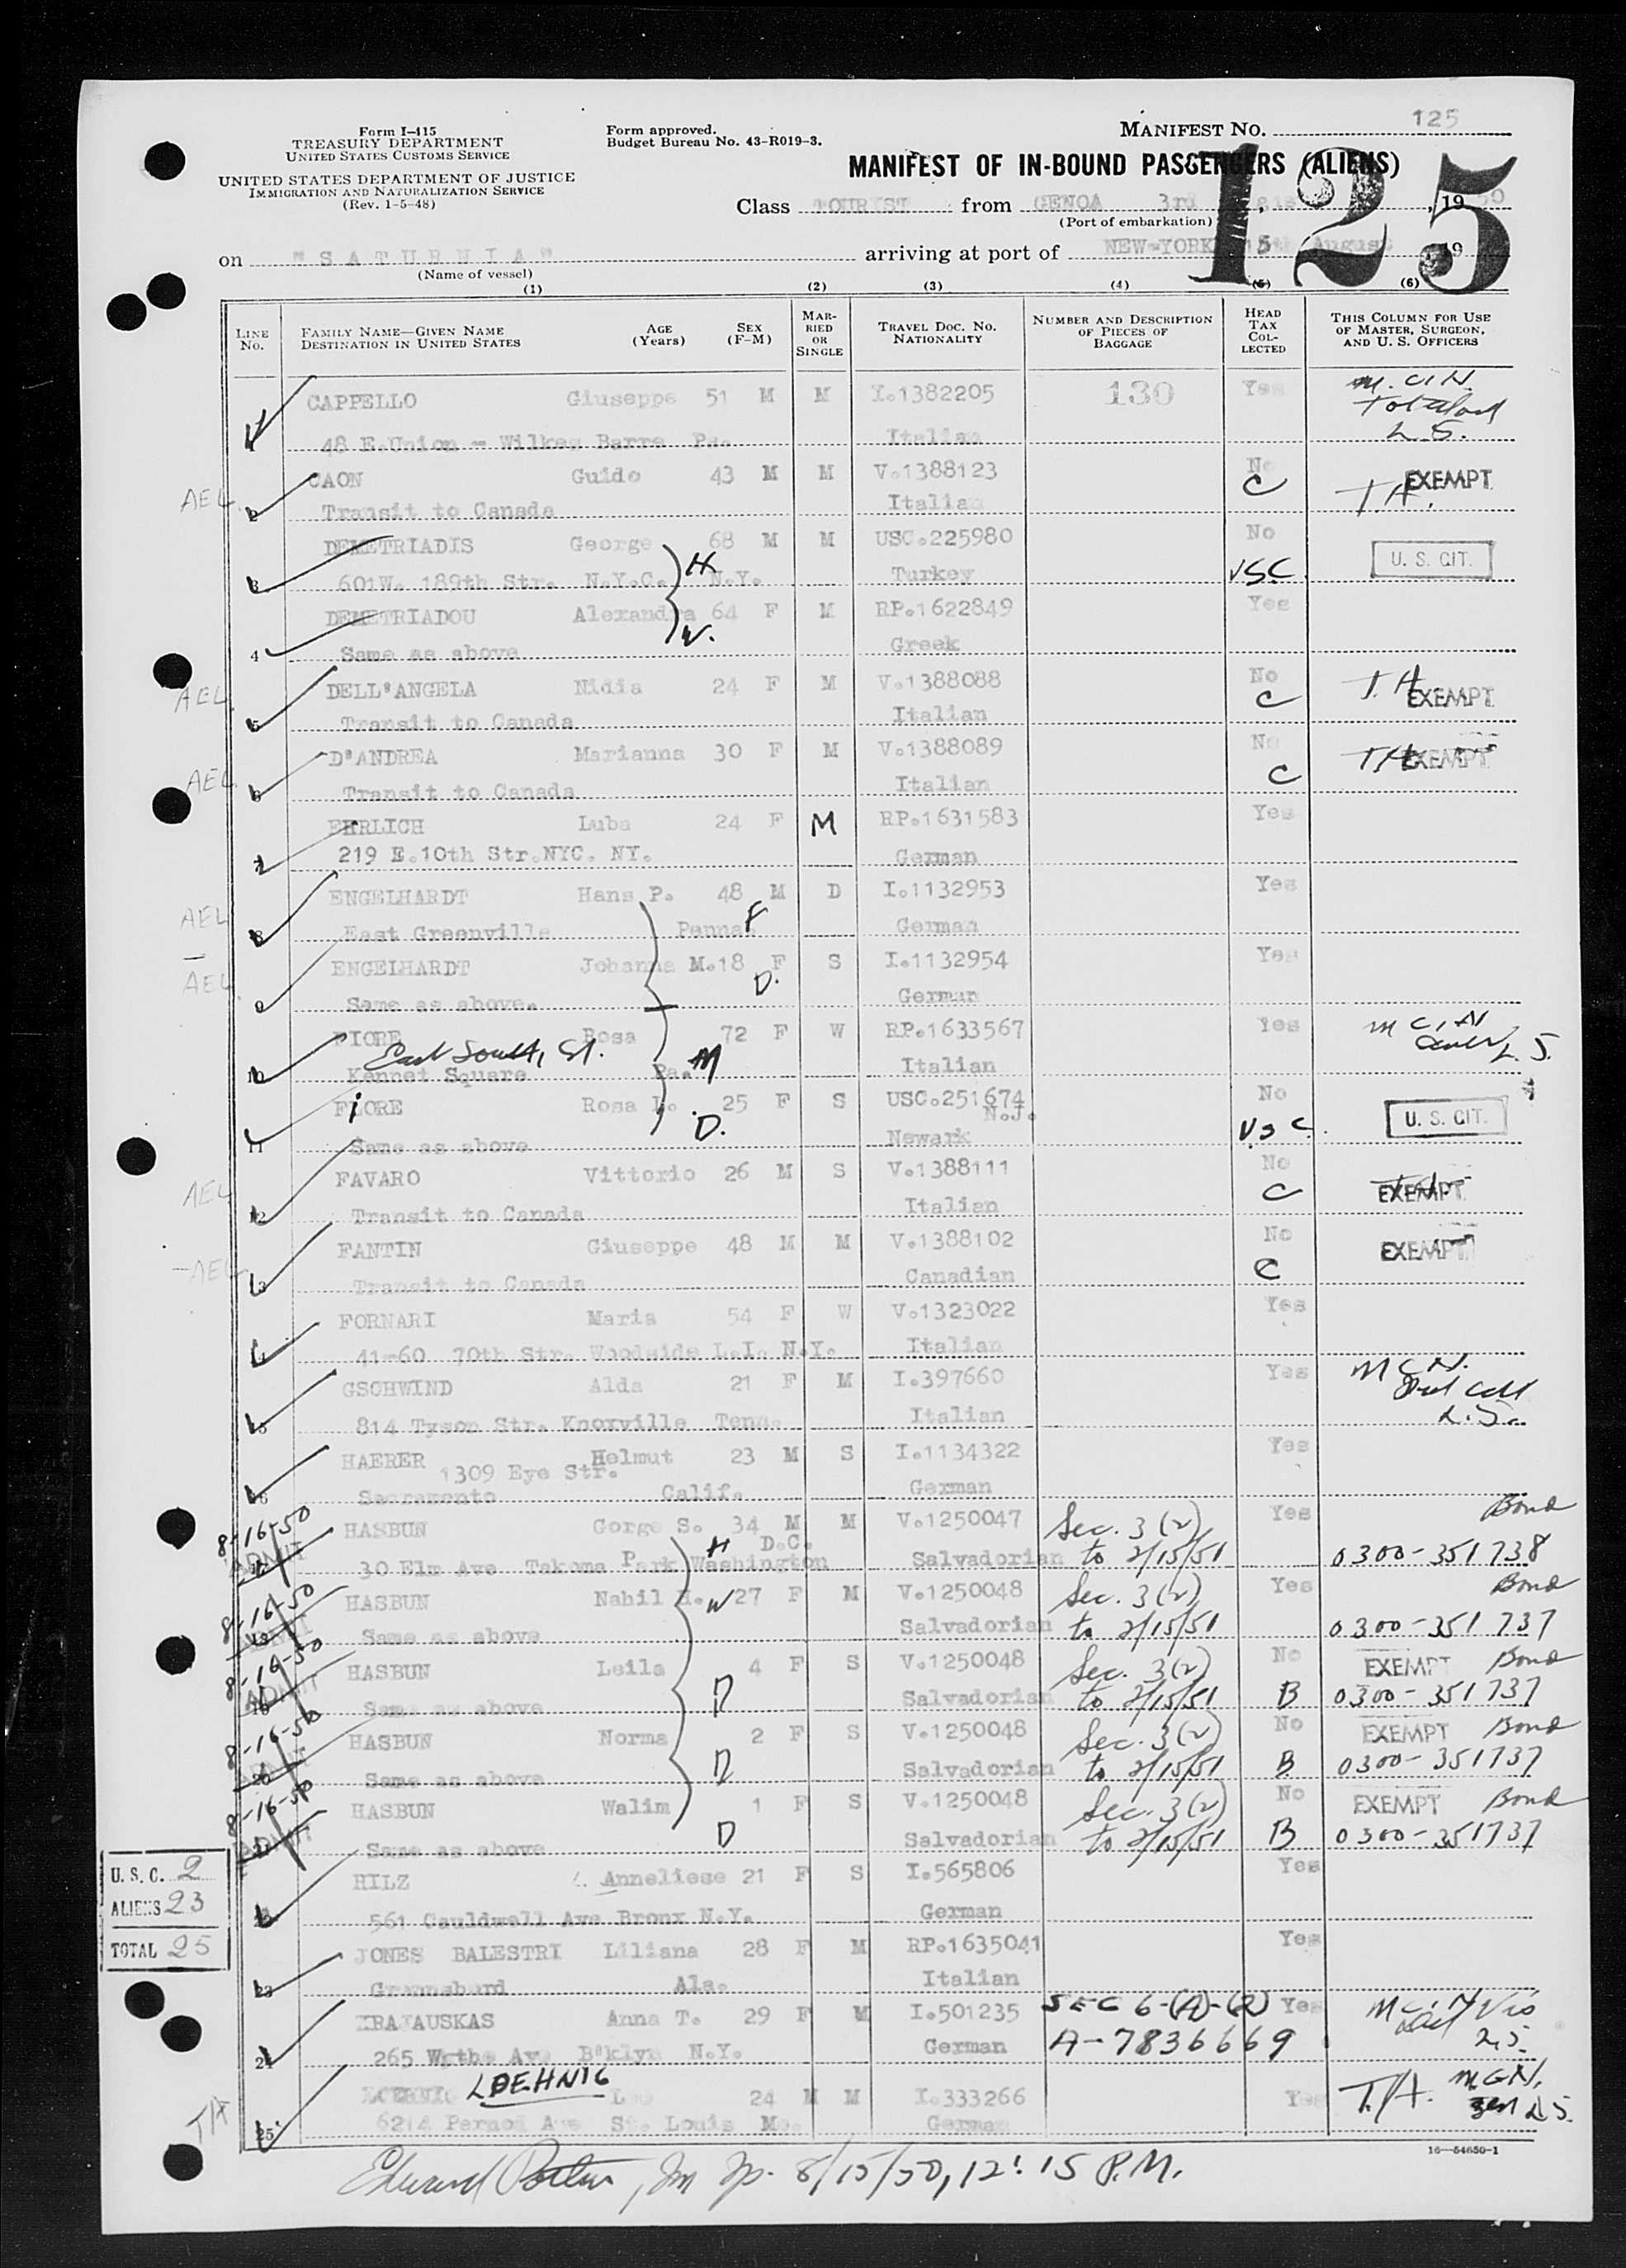 Form I-415
TREASURY DEPARTMENT
UNITED STATES CUSTOMS SERVICE
UNITED STATES DEPARTMENT OF JUSTICE
IMMIGRATION AND NATURALIZATION SERVICE
(Rev. 1-5-48)
Form approved.
Budget Bureau No. 43-R019-3.
MANIFEST NO. 125
MANIFEST OF IN-BOUND PASSENGERS (ALIENS)
125
Class TOURIST from GENOA 3rd , 1950
(Port of embarkation)
on "SATURNIA" arriving at port of NEW-YORK 15th August 19
(Name of vessel)
(1) (2) (3) (4) (5) (6)
LINE No. FAMILY NAME—GIVEN NAME DESTINATION IN UNITED STATES AGE (Years) SEX (F-M) MARRIED OR SINGLE TRAVEL DOC. NO. NATIONALITY NUMBER AND DESCRIPTION OF PIECES OF BAGGAGE HEAD TAX COLLECTED THIS COLUMN FOR USE OF MASTER, SURGEON, AND U. S. OFFICERS
CAPPELLO Giuseppe 51 M M I.1382205 130 Yes
48 E.Union - Wilkes Barre Pa. Italian L.S.
AEL CAON Guido 43 M M V.1388123 No EXEMPT
2 Transit to Canada Italian C T.A.
DEMETRIADIS George 68 M M USC.225980 No U. S. CIT.
3 601W. 189th Str. N.Y.C. N.Y. H Turkey USC
DEMETRIADOU Alexandra 64 F M RP.1622849 Yes
4 Same as above W. Greek
AEL DELL'ANGELA Nidia 24 F M V.1388088 No T.A. EXEMPT
5 Transit to Canada Italian C
AEL D'ANDREA Marianna 30 F M V.1388089 No T.A. EXEMPT
6 Transit to Canada Italian C
EHRLICH Luba 24 F M RP.1631583 Yes
7 219 E.10th Str.NYC. NY. German
AEL ENGELHARDT Hans P. 48 M D I.1132953 Yes
8 East Greenville Penna. F German
AEL ENGELHARDT Johanna M.18 F S I.1132954 Yes
9 Same as above. D. German
FIORE Rosa 72 F W RP.1633567 Yes
East South, St.
10 Kennet Square Pa. M Italian L.S.
FIORE Rosa L. 25 F S USC.251674 No U. S. CIT.
11 Same as above D. Newark N.J. USC
AEL FAVARO Vittorio 26 M S V.1388111 No EXEMPT
12 Transit to Canada Italian C
AEL FANTIN Giuseppe 48 M M V.1388102 No EXEMPT
13 Transit to Canada Canadian C
FORNARI Maria 54 F W V.1323022 Yes
14 41-60 70th Str. Woodside L.I. N.Y. Italian
GSCHWIND Alda 21 F M I.397660 Yes
15 814 Tyson Str. Knoxville Tenn. Italian L.S.
HAERER Helmut 23 M S I.1134322 Yes
1309 Eye Str.
16 Sacramento Calif. German
8-16-50 HASBUN Gorge S. 34 M M V.1250047 Sec. 3 (2) Yes Bond
ADMIT 17 30 Elm Ave Takoma Park Washington D.C. H Salvadorian to 2/15/51 0300-351738
8-16-50 HASBUN Nahil H. W 27 F M V.1250048 Sec. 3 (2) Yes Bond
ADMIT 18 Same as above Salvadorian to 2/15/51 0300-351737
8-16-50 HASBUN Leila 4 F S V.1250048 Sec. 3(2) No EXEMPT Bond
ADMIT 19 Same as above D Salvadorian to 2/15/51 B 0300-351737
8-16-50 HASBUN Norma 2 F S V.1250048 Sec. 3(2) No EXEMPT Bond
20 Same as above D Salvadorian to 2/15/51 B 0300-351737
8-16-50 HASBUN Walim 1 F S V.1250048 Sec. 3(2) No EXEMPT Bond
ADMIT 21 Same as above D Salvadorian to 2/15/51 B 0300-351737
U. S. C. 2
ALIENS 23
TOTAL 25
HILZ Anneliese 21 F S I.565806 Yes
22 561 Cauldwell Ave Bronx N.Y. German
JONES BALESTRI Liliana 28 F M RP.1635041 Yes
23 Greensburd Ala. Italian
KRAJAUSKAS Anna T. 29 F M I.501235 SEC 6-(A)-(2) Yes
24 265 Ave B'klyn N.Y. German A-7836669 L.S.
LOEHNIG 24 M M I.333266 Yes T/A.
T/A 25 6214 Pernod Ave St. Louis Mo. German L.S.
16—54650-1
Edward , Im Ip. 8/15/50, 12:15 P.M.